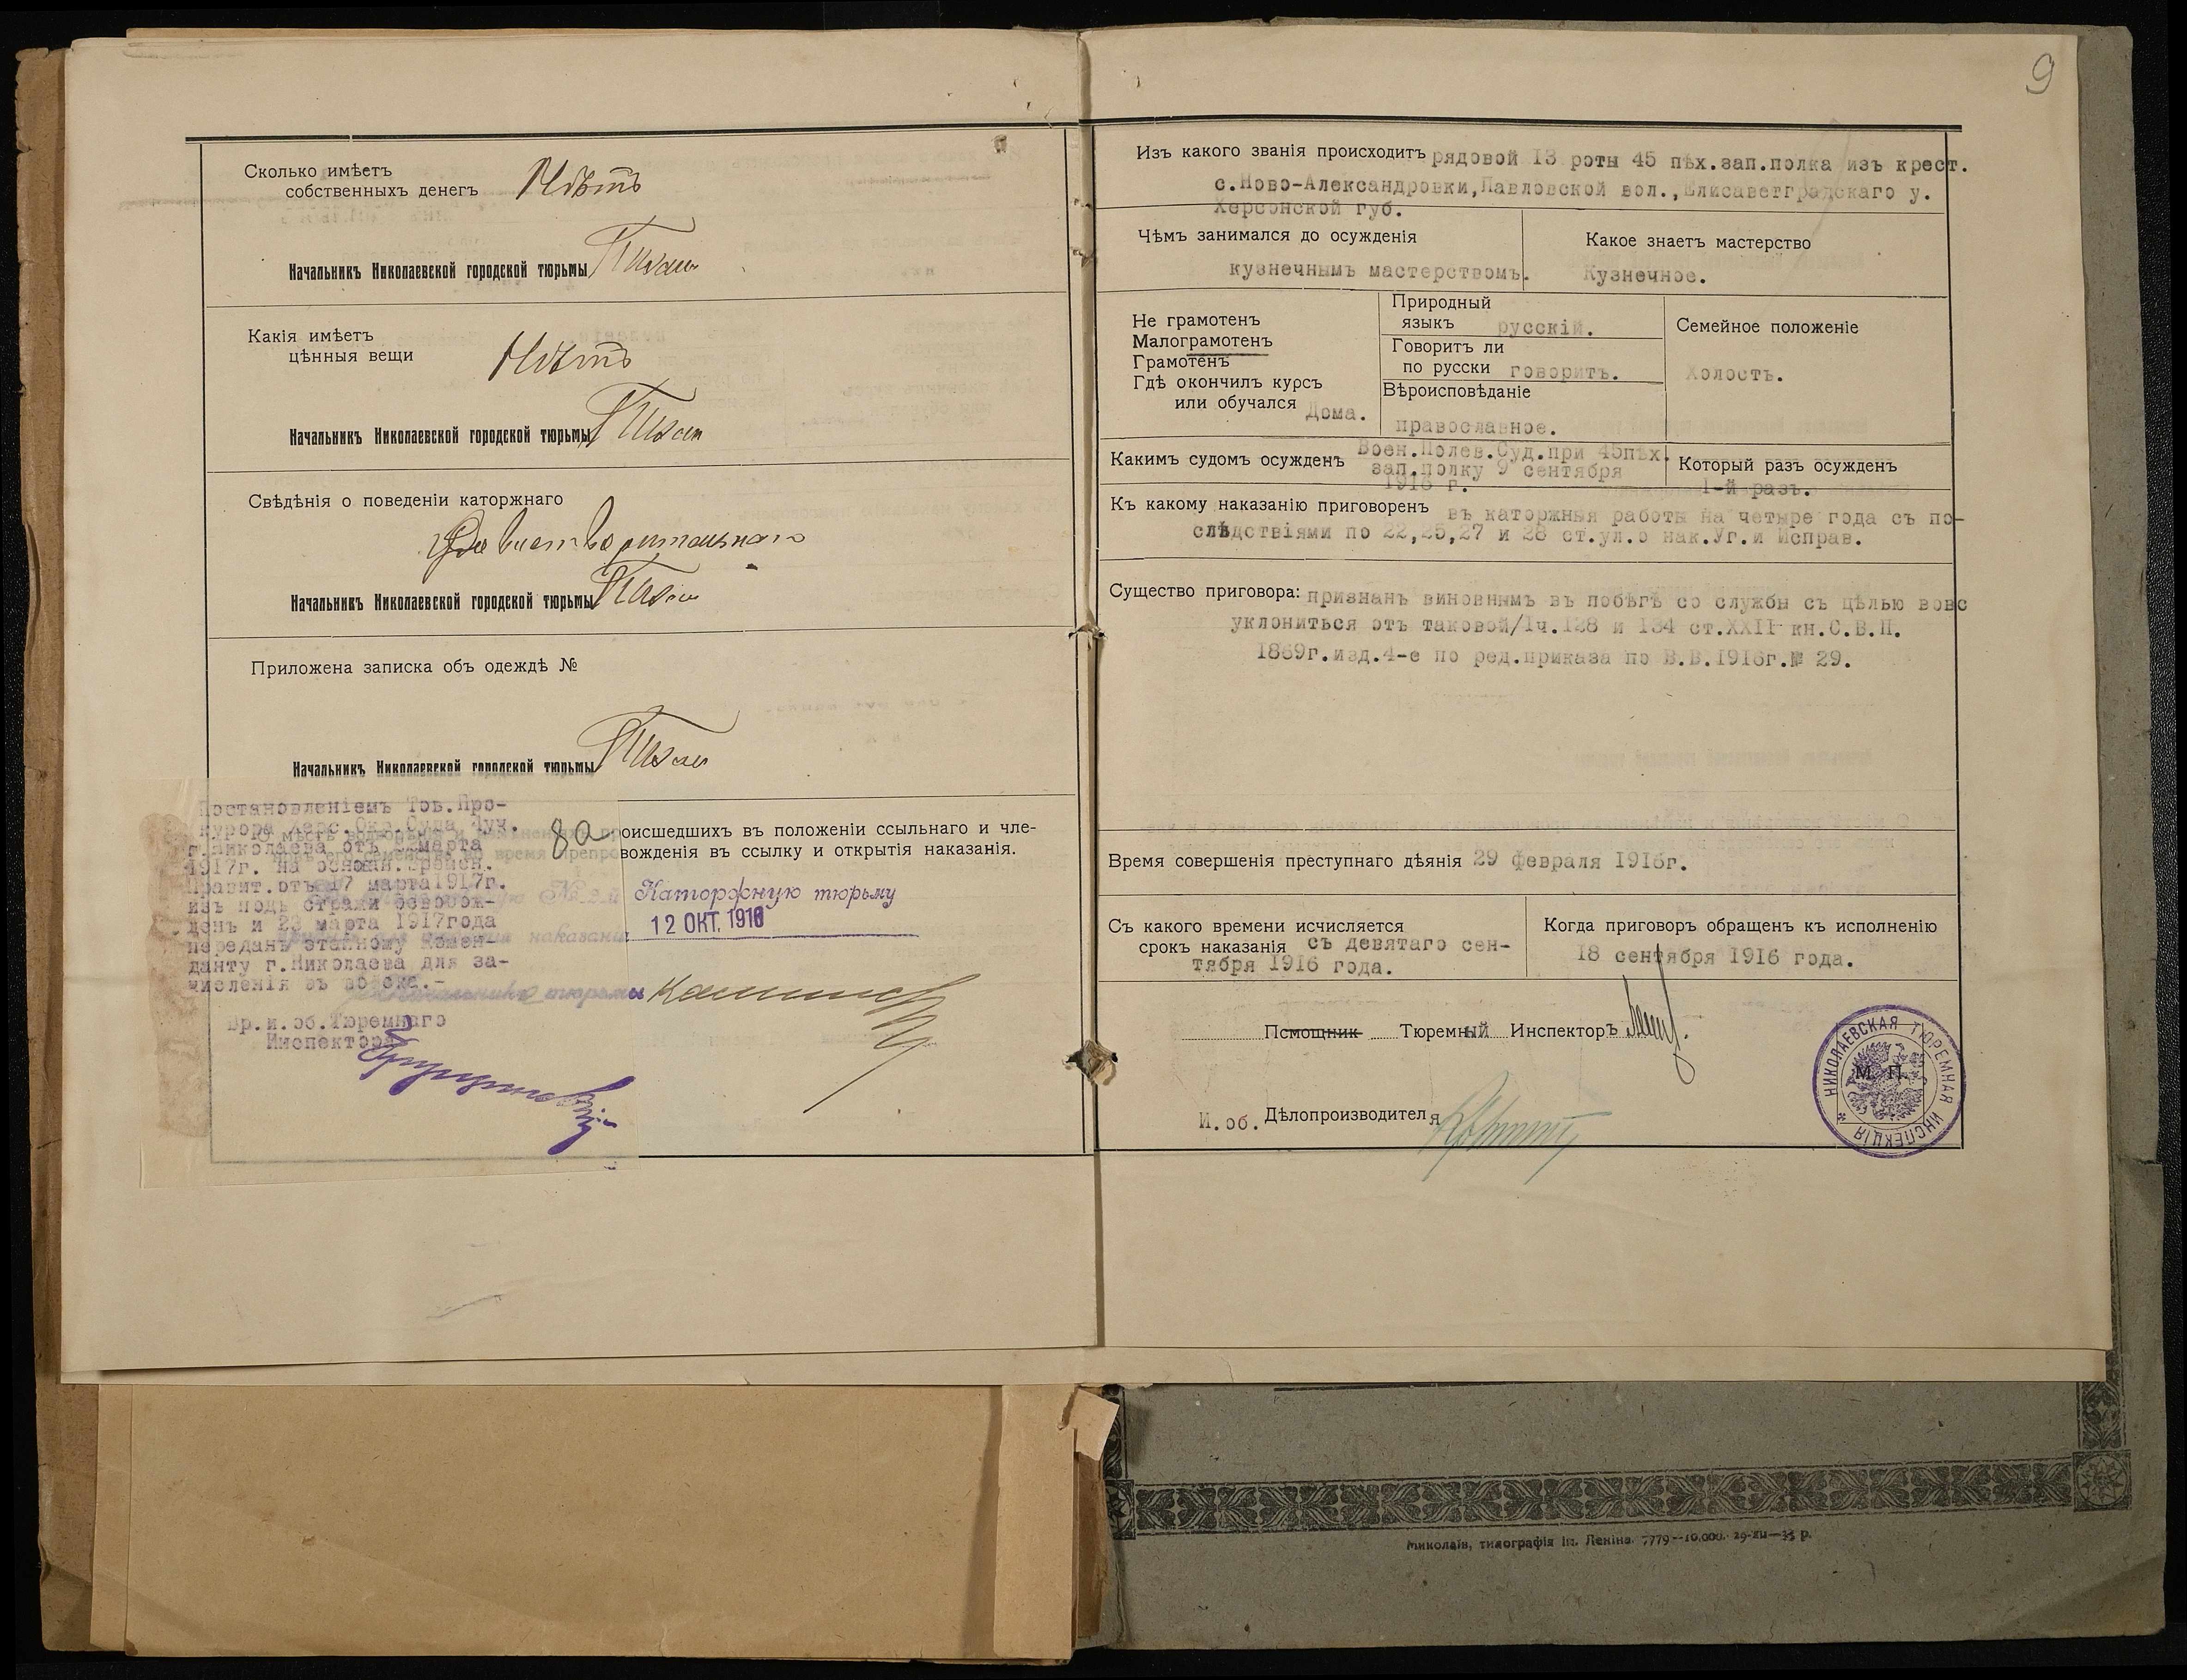 Сколько имѣетъ
собственныхъ денегъ Нѣтъ
Начальникъ Николаевской городской тюрьмы
Какія имѣетъ
цѣнныя вещи Нѣтъ
Начальникъ Николаевской городской тюрьмы
Свѣдѣнія о поведеніи каторжнаго
Удовлетворительнаго
Начальникъ Николаевской городской тюрьмы
Приложена записка объ одеждѣ №
Начальникъ Николаевской городской тюрьмы
Постановленіемъ Тов.Про-
курора Херс.Окр.Суда 4уч.
г.Николаева отъ марта
1917г. на основан. Времен.
Правит.отъ 17 марта1917г.
изъ подъ стражи освобож-
денъ и 23 марта 1917года
переданъ этапному комен-
данту г.Николаева для за-
численія въ войска.-
Вр.и.об.Тюремнаго
Инспектора
8а
происшедшихъ въ положеніи ссыльнаго и чле-
вожденія въ ссылку и открытія наказанія.
№ 2-й Каторжную тюрьму
наказанія 12 ОКТ. 1916
Начальникъ тюрьмы
9
Изъ какого званія происходитъ рядовой 13 роты 45 пѣх.зап.полка изъ крест.
с.Ново-Александровки,Павловской вол.,Елисаветградскаго у.
Херсонской губ.
Чѣмъ занимался до осужденія
кузнечнымъ мастерствомъ.
Какое знаетъ мастерство
Кузнечное.
Не грамотенъ
Малограмотенъ
Грамотенъ
Гдѣ окончилъ курсъ
или обучался Дома.
Природный
языкъ русскій.
Говоритъ ли
по русски говоритъ.
Вѣроисповѣданіе
православное.
Семейное положеніе
Холостъ.
Какимъ судомъ осужденъ Воен.Полев.Суд.при 45пѣх.
зап.полку 9 сентября
1916 г.
Который разъ осужденъ
1-й разъ.
Къ какому наказанію приговоренъ въ каторжныя работы на четыре года съ по-
слѣдствіями по 22,25,27 и 28 ст.ул.о нак.Уг.и Исправ.
Существо приговора: признанъ виновнымъ въ побѣгѣ со службы съ цѣлью вовс
уклониться отъ таковой/1ч.128 и 134 ст.XXII кн.С.В.П.
1869г.изд.4-е по ред.приказа по В.В.1916г.№ 29.
Время совершенія преступнаго дѣянія 29 февраля 1916г.
Съ какого времени исчисляется
срокъ наказанія съ девятаго сен-
тября 1916 года.
Когда приговоръ обращенъ къ исполненію
18 сентября 1916 года.
Помощник Тюремный Инспекторъ
НИКОЛАЕВСКАЯ ТЮРЕМНАЯ ИНСПЕКЦІЯ *
М. П.
И.об. Дѣлопроизводителя
Миколаїв, типографія ім. Леніна. 7779--10.000. 29-XII--35 р.